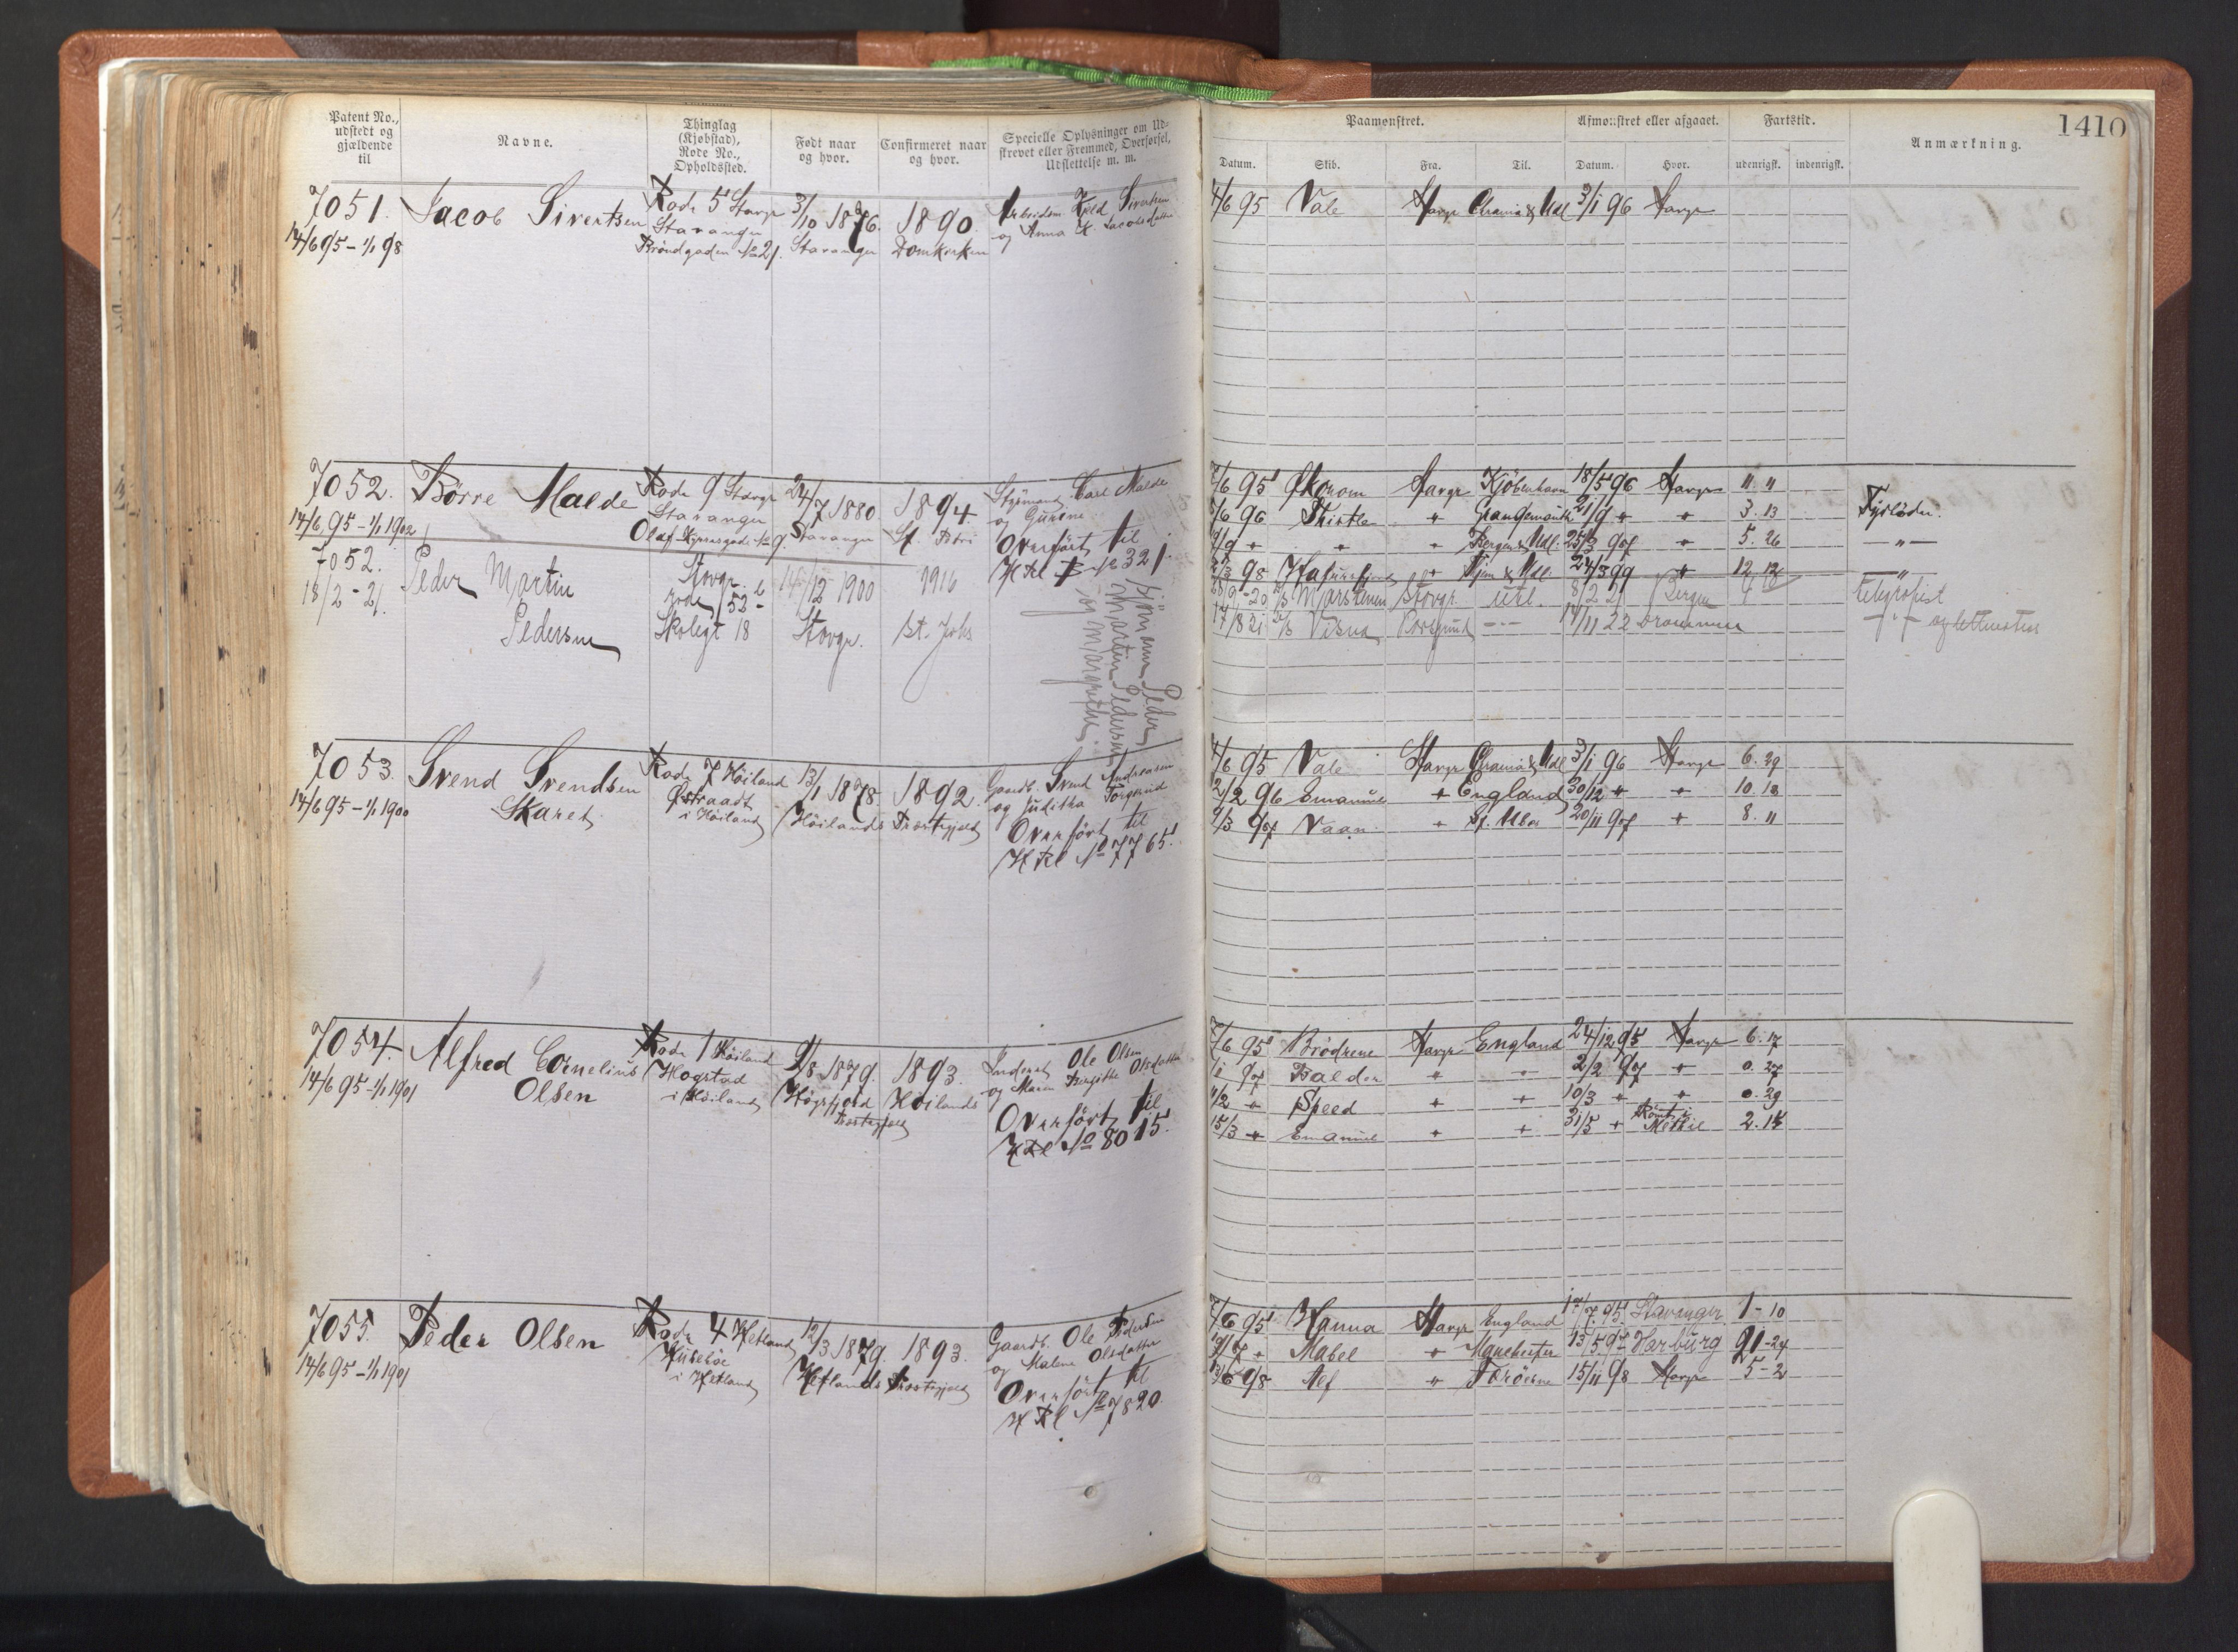 Patent No., udstedt og gjældende til
Navne.
Thinglag (Kjøbstad), Rode No., Opholdssted.
Født naar og hvor.
Confirmeret naar og hvor.
Specielle Oplysninger om Udskrevet eller Fremmed, Overførsel, Udslettelse m. m.
Paamønstret.
Afmønstret eller afgaaet.
Fartstid.
Anmærkning.
1410
Datum. Skib. Fra. Til. Datum. Hvor. udenrigsk. indenrigsk.
7051. Jacob Sivertsen Rode 5 Stavgr 3/10 1876. 1890.
14/6 95 - 1/1 98 Stavanger Stavanger Domkirken
Brøndgaden No 21.
og Anna K. Jacobsdatter
4/6 95 Vale Stavgr Chrania & Udl 3/1 96 Stavgr
7052. Børre Malde Rode 9 Stavgr 24/7 1880 1894. Styrmand Carl Malde
14/6 95 - 1/1 1902 Stavanger Stavanger St. Petri og Gurine
Overført til
H Rl No 321.
/6 95 Stavgr Kjöbenhavn 18/5 96 Stavgr 11. 11
/6 96 Thistle " Grangemouth 21/9 " " 3. 13 Fyrbøder.
/9 " " " Bergen & Udl. 25/3 97 " 5. 26 - " -
/3 98 " & Udl 24/3 99 " 12 - " -
7052. Peder Martin Stavgr. 14/12 1900 1916
18/2 - 21. Pedersen rode 52 Stavgr. St. Johs
Skolegt 18
Sjømann Peder
Martin Pedersen
og Margrethe.
Stavgr. Utl. 8/2 21 Bergen telegrafist
17/8 21 Visna Porsgrund - " - 14/11 22 Drammen - " - og lettmatros
7053. Svend Svendsen Rode 7 Høiland 13/1 1878. 1892. Gaardb. Svend Andreasen
14/6 95 - 1/1 1900 Skaret Østraadt Høilands Præstegjeld og Juditha
i Høiland
Overført til
H Rl No 7765.
4/6 95 Vale Stavgr Chrania & Udl 3/1 96 Stavgr 6. 29
2/2 96 Emanuel " England 30/12 " " 10. 18
9/3 97 Vaan " 20/11 97 " 8. 11
7054. Alfred Cornelius Rode 1 Høiland 9/8 1879. 1893. Inderst Ole Olsen
14/6 95 - 1/1 1901 Olsen Hogstad Høgsfjord Høilands og Maren Bergitte Olsdatter
i Høiland Præstegjeld
Overført til
H Rl No 8015.
/6 95 Brødrene Stavgr England 24/12 95 Stavgr 6. 17
/1 97 Balder " " 2/2 97 " 0. 27
11/2 " Speed " " 10/3 " " 0. 29
15/3 " Emanuel " " 31/5 " Rømt i Methil 2. 15
7055. Peder Olsen Rode 4 Hetland 12/3 1879. 1893. Gaardb. Ole Pedersen
14/6 95 - 1/1 1901 i Hetland Hetlands Præstegjeld og Malene Olsdatter
Overført til
H Rl No 7820.
/6 95 Hanna Stavgr England 17/7. 95 Stavanger 1 - 10
Mabel " Manchester 13/5 97 Harburg 21 - 24
/6 98 Alf " Færøerne 15/11 98 Stavgr 5 - 2